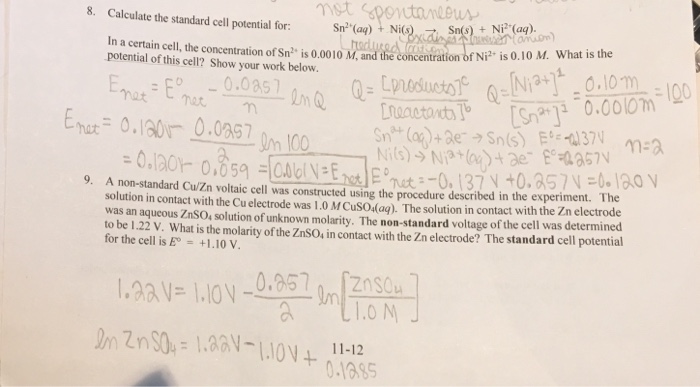 not spontaneous
8. Calculate the standard cell potential for: Sn²⁺(aq) + Ni(s) → Sn(s) + Ni²⁺(aq).
In a certain cell, the concentration of Sn²⁺ is 0.0010 M, and the concentration of Ni²⁺ is 0.10 M. What is the
potential of this cell? Show your work below.
E net = E° net - 0.0257/n ln Q Q = [products]ᶜ/[reactants]ᵇ Q = [Ni²⁺]¹/[Sn²⁺]¹ = 0.10 m/0.0010 m = 100
E net = 0.120V - 0.0257/2 ln 100 Sn²⁺(aq) + 2e⁻ → Sn(s) E° = -0.137V n=2
Ni(s) → Ni²⁺(aq) + 2e⁻ E° = 0.257V
= 0.120V - 0.059 = 0.061V = E net E° net = -0.137 V + 0.257V = 0.120 V
9. A non-standard Cu/Zn voltaic cell was constructed using the procedure described in the experiment. The
solution in contact with the Cu electrode was 1.0 M CuSO₄(aq). The solution in contact with the Zn electrode
was an aqueous ZnSO₄ solution of unknown molarity. The non-standard voltage of the cell was determined
to be 1.22 V. What is the molarity of the ZnSO₄ in contact with the Zn electrode? The standard cell potential
for the cell is E° = +1.10 V.
1.22V = 1.10V - 0.257/2 ln [ZnSO₄/1.0 M]
ln ZnSO₄ = 1.22V - 1.10V + 0.1285
11-12